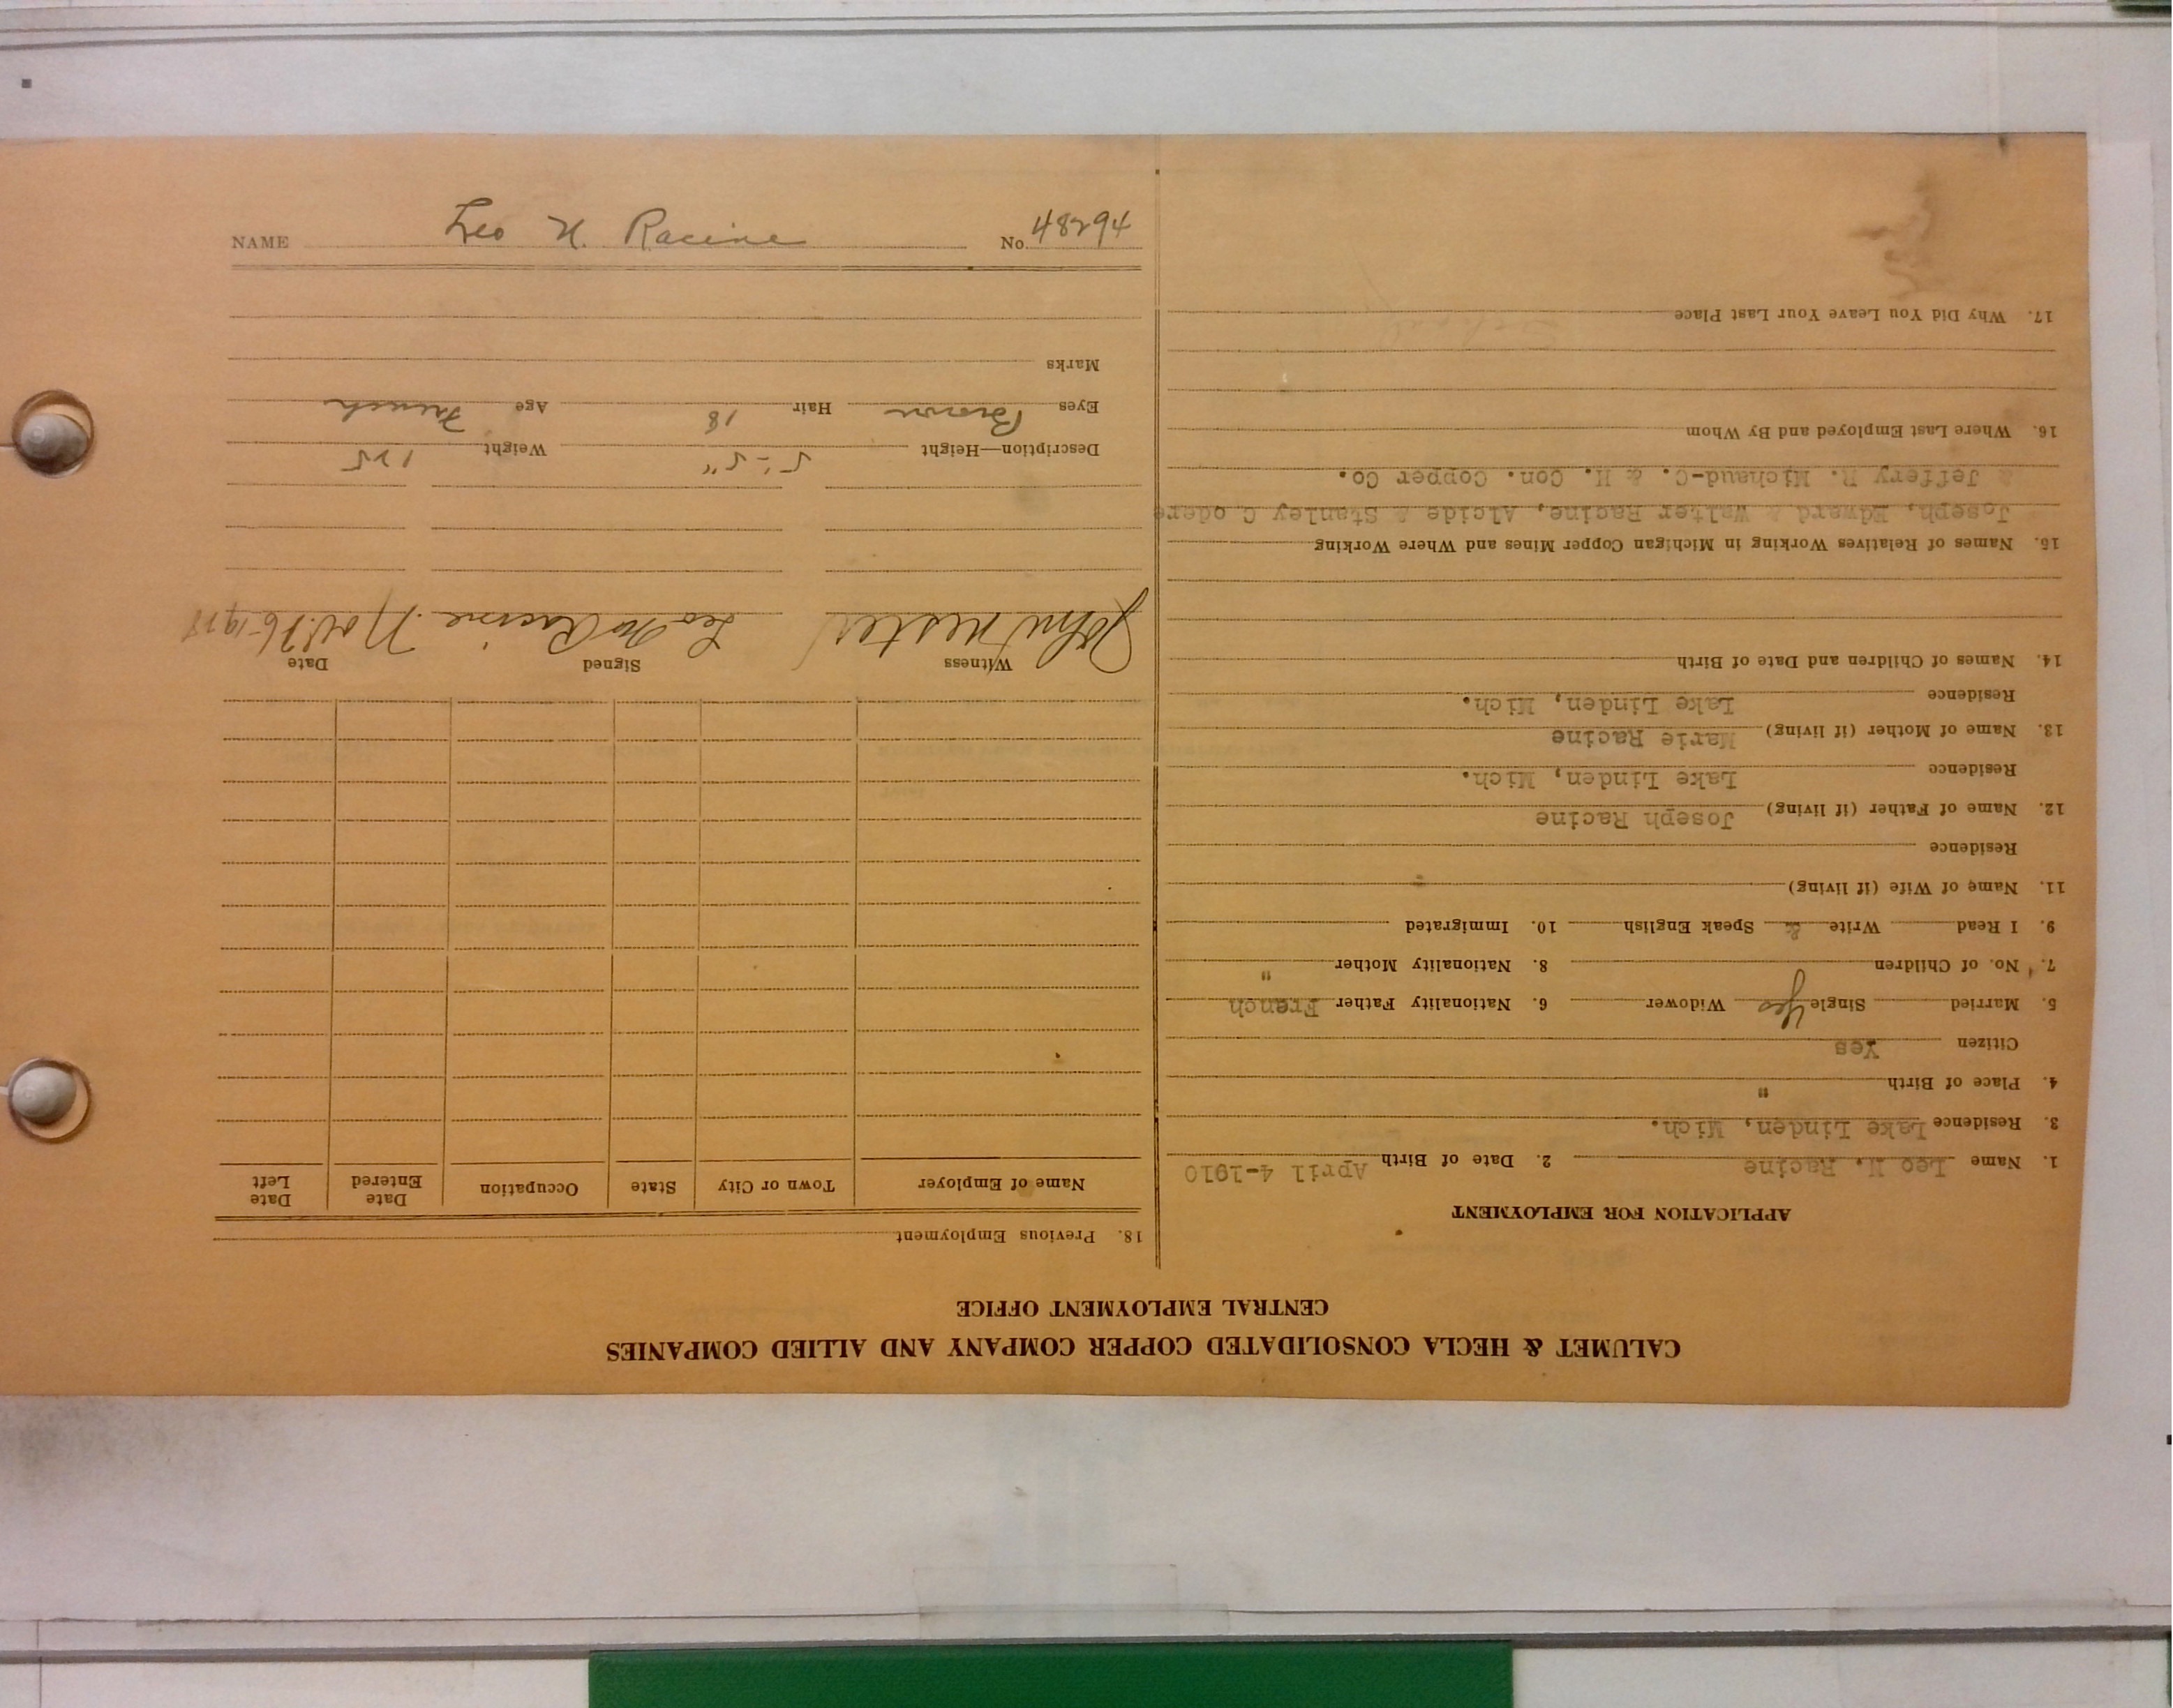 CALUMET & HECLA CONSOLIDATED COPPER COMPANY AND ALLIED COMPANIES
CENTRAL EMPLOYMENT OFFICE
APPLICATION FOR EMPLOYMENT
1. Name Leo N. Racine 2. Date of Birth April 4-1910
3. Residence Lake Linden, Mich.
4. Place of Birth "
Citizen Yes
5. Married Single Yes Widower 6. Nationality Father French
7. No. of Children 8. Nationality Mother "
9. I Read Write & Speak English 10. Immigrated
11. Name of Wife (if living)
Residence
12. Name of Father (if living) Joseph Racine
Residence Lake Linden, Mich.
13. Name of Mother (if living) Marie Racine
Residence Lake Linden, Mich.
14. Names of Children and Date of Birth
15. Names of Relatives Working in Michigan Copper Mines and Where Working
Joseph, Edward & Walter Racine, Alcide & Stanley C odere
& Jeffery R. Michaud-C. & H. Con. Copper Co.
16. Where Last Employed and By Whom
17. Why Did You Leave Your Last Place
18. Previous Employment
Name of Employer Town or City State Occupation Date Entered Date Left
Witness Signed Date
John Nester Leo Racine Nov. 26-1928
Description—Height 5'-5" Weight 125
Eyes Brown Hair 18 Age French
Marks
NAME Leo N. Racine No. 48294